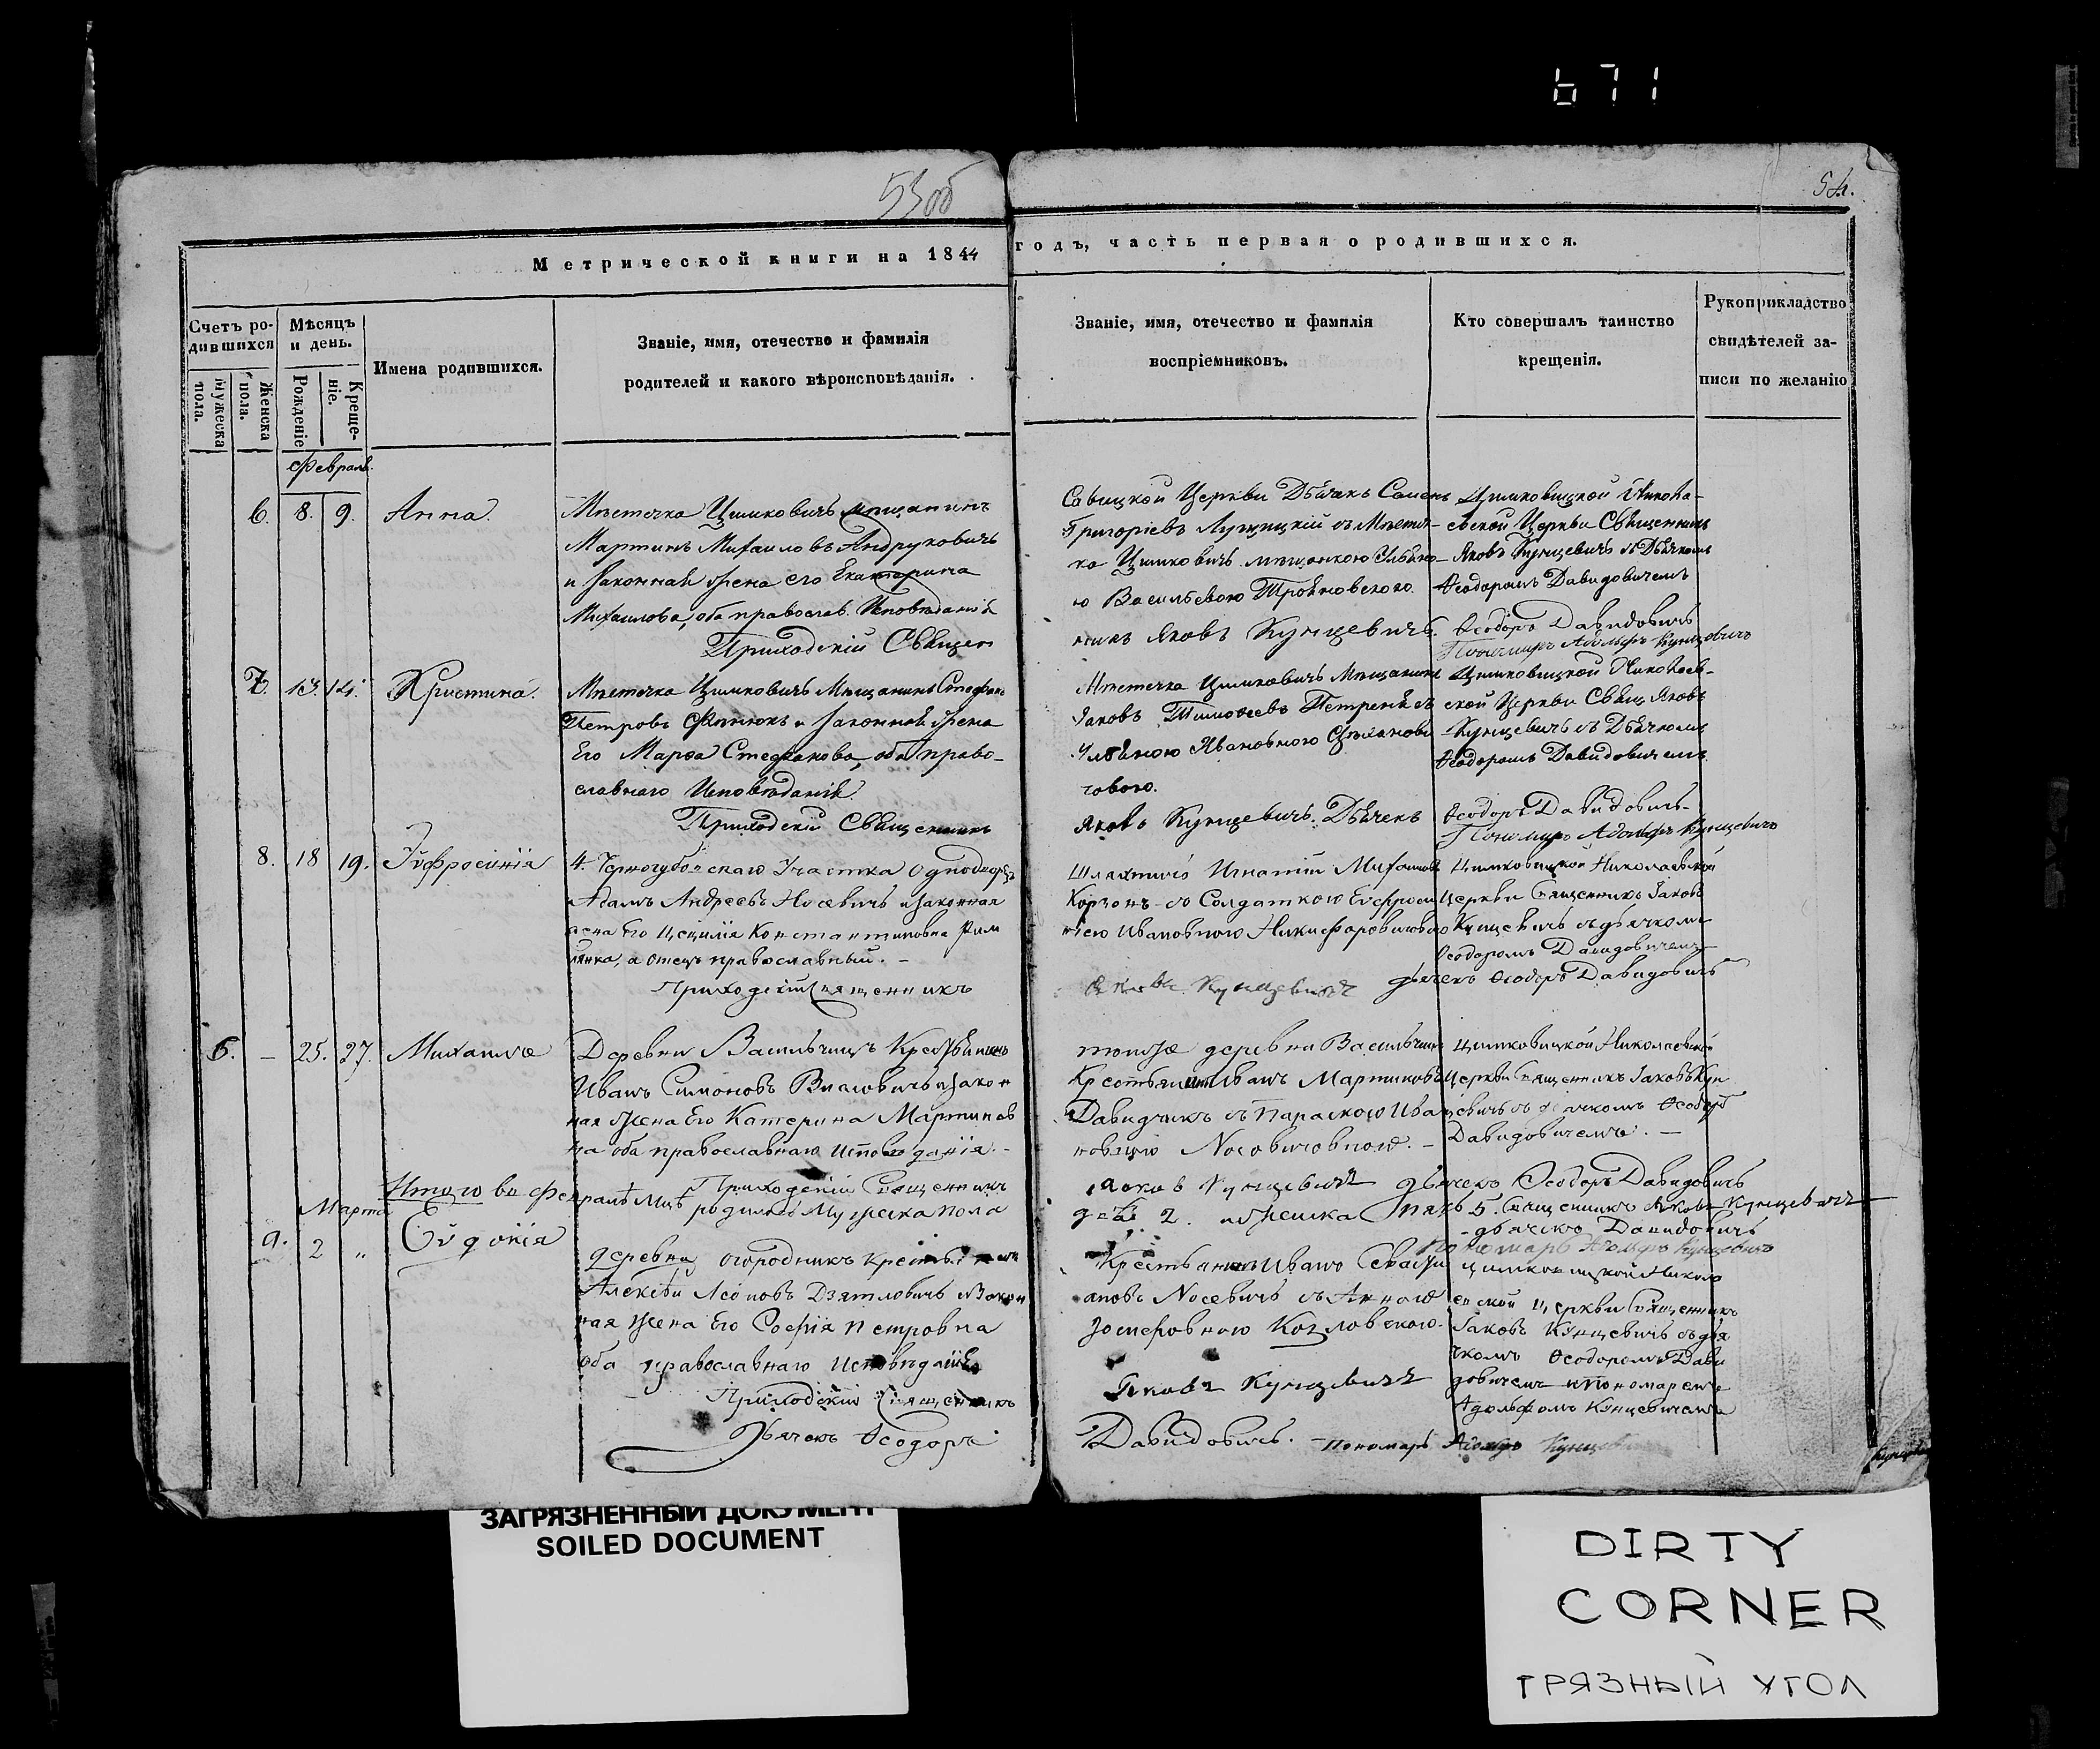 671
53 об
54.
Метрической книги на 1844
годъ, часть первая о родившихся.
Счетъ ро-
дившихся
Мужеска
пола.
Женска
пола.
Мѣсяцъ
и день.
Рожденіе
Креще-
ніе.
Имена родившихся.
Званіе, имя, отечество и фамилія
родителей и какого вѣроисповѣданія.
Званіе, имя, отечество и фамилія
воспріемниковъ.
Кто совершалъ таинство
крещенія.
Рукоприкладство
свидѣтелей за-
писи по желанію
Февраль.
6. 8. 9. Анна.
Мѣстечка Цимковичъ мѣщанинъ
Мартинъ Михаиловъ Андруковичъ
и законная жена его Екатерина
Михаилова, оба православ. Исповѣданія
Приходскій Священ
Савицкой Церкви Дьячекъ Семенъ
Григоріевъ Лужицкій съ Мѣстеч-
ка Цимковичъ мѣщанкою
ю Васильевою
никъ Яковъ Кунцевичъ.
Цимковицкой Никола-
евской Церкви Священникъ
Яковъ Кунцевичъ съ Дьячкомъ
Ѳеодоромъ Давидовичемъ
Ѳеодоръ Давидовичъ
Пономарь Адольфъ Кунцевичъ
7. 13. 14. Христина.
Мѣстечка Цимковичъ Мѣщанинъ Стефанъ
Петровъ и законная жена
Его Марѳа Стефанова, оба право-
славнаго Исповѣданія.
Приходскій Священникъ
Мѣстечка Цимковичъ Мѣщанинъ
Іаковъ Тимоѳеевъ
Ульяною Ивановною
Яковъ Кунцевичъ. Дьячекъ
Цимковицкой Николаев-
ской Церкви Свящ. Яковъ
Кунцевичъ съ Дьячкомъ
Ѳеодоромъ Давидовичемъ.
Ѳеодоръ Давидовичъ
Пономарь Адольфъ Кунцевичъ
8. 18 19. Эѵфросинія
4. Черногубовскаго Участка Однодворецъ
Адамъ Андреевъ Носевичъ и законная
жена Его Цецилія Константиновна Рим
лянка, а отецъ православный. –
Приходскій Священникъ
Шляхтичъ Игнатій Михаиловъ
Корзонъ съ Солдаткою Евфроси
ніею Ивановною
Яковъ Кунцевичъ
Цимковицкой Николаевской
Церкви Священникъ Іаковъ
Кунцевичъ съ дьячкомъ
Ѳеодоромъ Давидовичемъ
дьячекъ Ѳеодоръ Давидовичъ
6. – 25. 27. Михаилъ
Деревни Васильчицъ Крестьянинъ
Иванъ Симоновъ и закон
ная жена Его Катерина Мартинов
на оба православнаго исповѣданія. –
Приходскій Священникъ
тойже деревни Васильчицъ
Крестьянинъ Иванъ Мартиновъ
Давидчикъ съ Параскою Ива
новною Носовичовною. –
Яковъ Кунцевичъ дьячекъ Ѳеодоръ Давидовичъ
Цимковицкой Николаевской
Церкви Священникъ Іаковъ Кун
цевичъ съ дьячкомъ Ѳеодоръ
Давидовичемъ. –
Итого въ Февралѣ Мцѣ родилось Мужеска пола
2. а Женска 5. Священникъ Яковъ Кунцевичъ
дьячекъ Давидовичъ
Пономарь Адольфъ Кунцевичъ
Марта
9. 2 „ Еѵдокія
деревни огородникъ Крестьянинъ
Алексѣй Леоновъ Дзятловичъ и Закон
ная Жена Его Софія Петровна
оба православнаго Исповѣданія
Приходскій Священникъ
Дьячекъ Ѳеодоръ
Крестьянинъ Иванъ Севастіи
ановъ Носевичъ съ Анною
Іосифовною Козловскою.
Яковъ Кунцевичъ
Давидовичъ. – пономарь Адольфъ Кунцевичъ
Цимковицкой Никола
евской церкви Священникъ
Іаковъ Кунцевичъ съ дья
чкомъ Ѳеодоромъ Дави
довичемъ и пономаремъ
Адольфомъ Кунцевичемъ
ЗАГРЯЗНЕННЫЙ ДОКУМЕНТ
SOILED DOCUMENT
DIRTY
CORNER
ГРЯЗНЫЙ УГОЛ